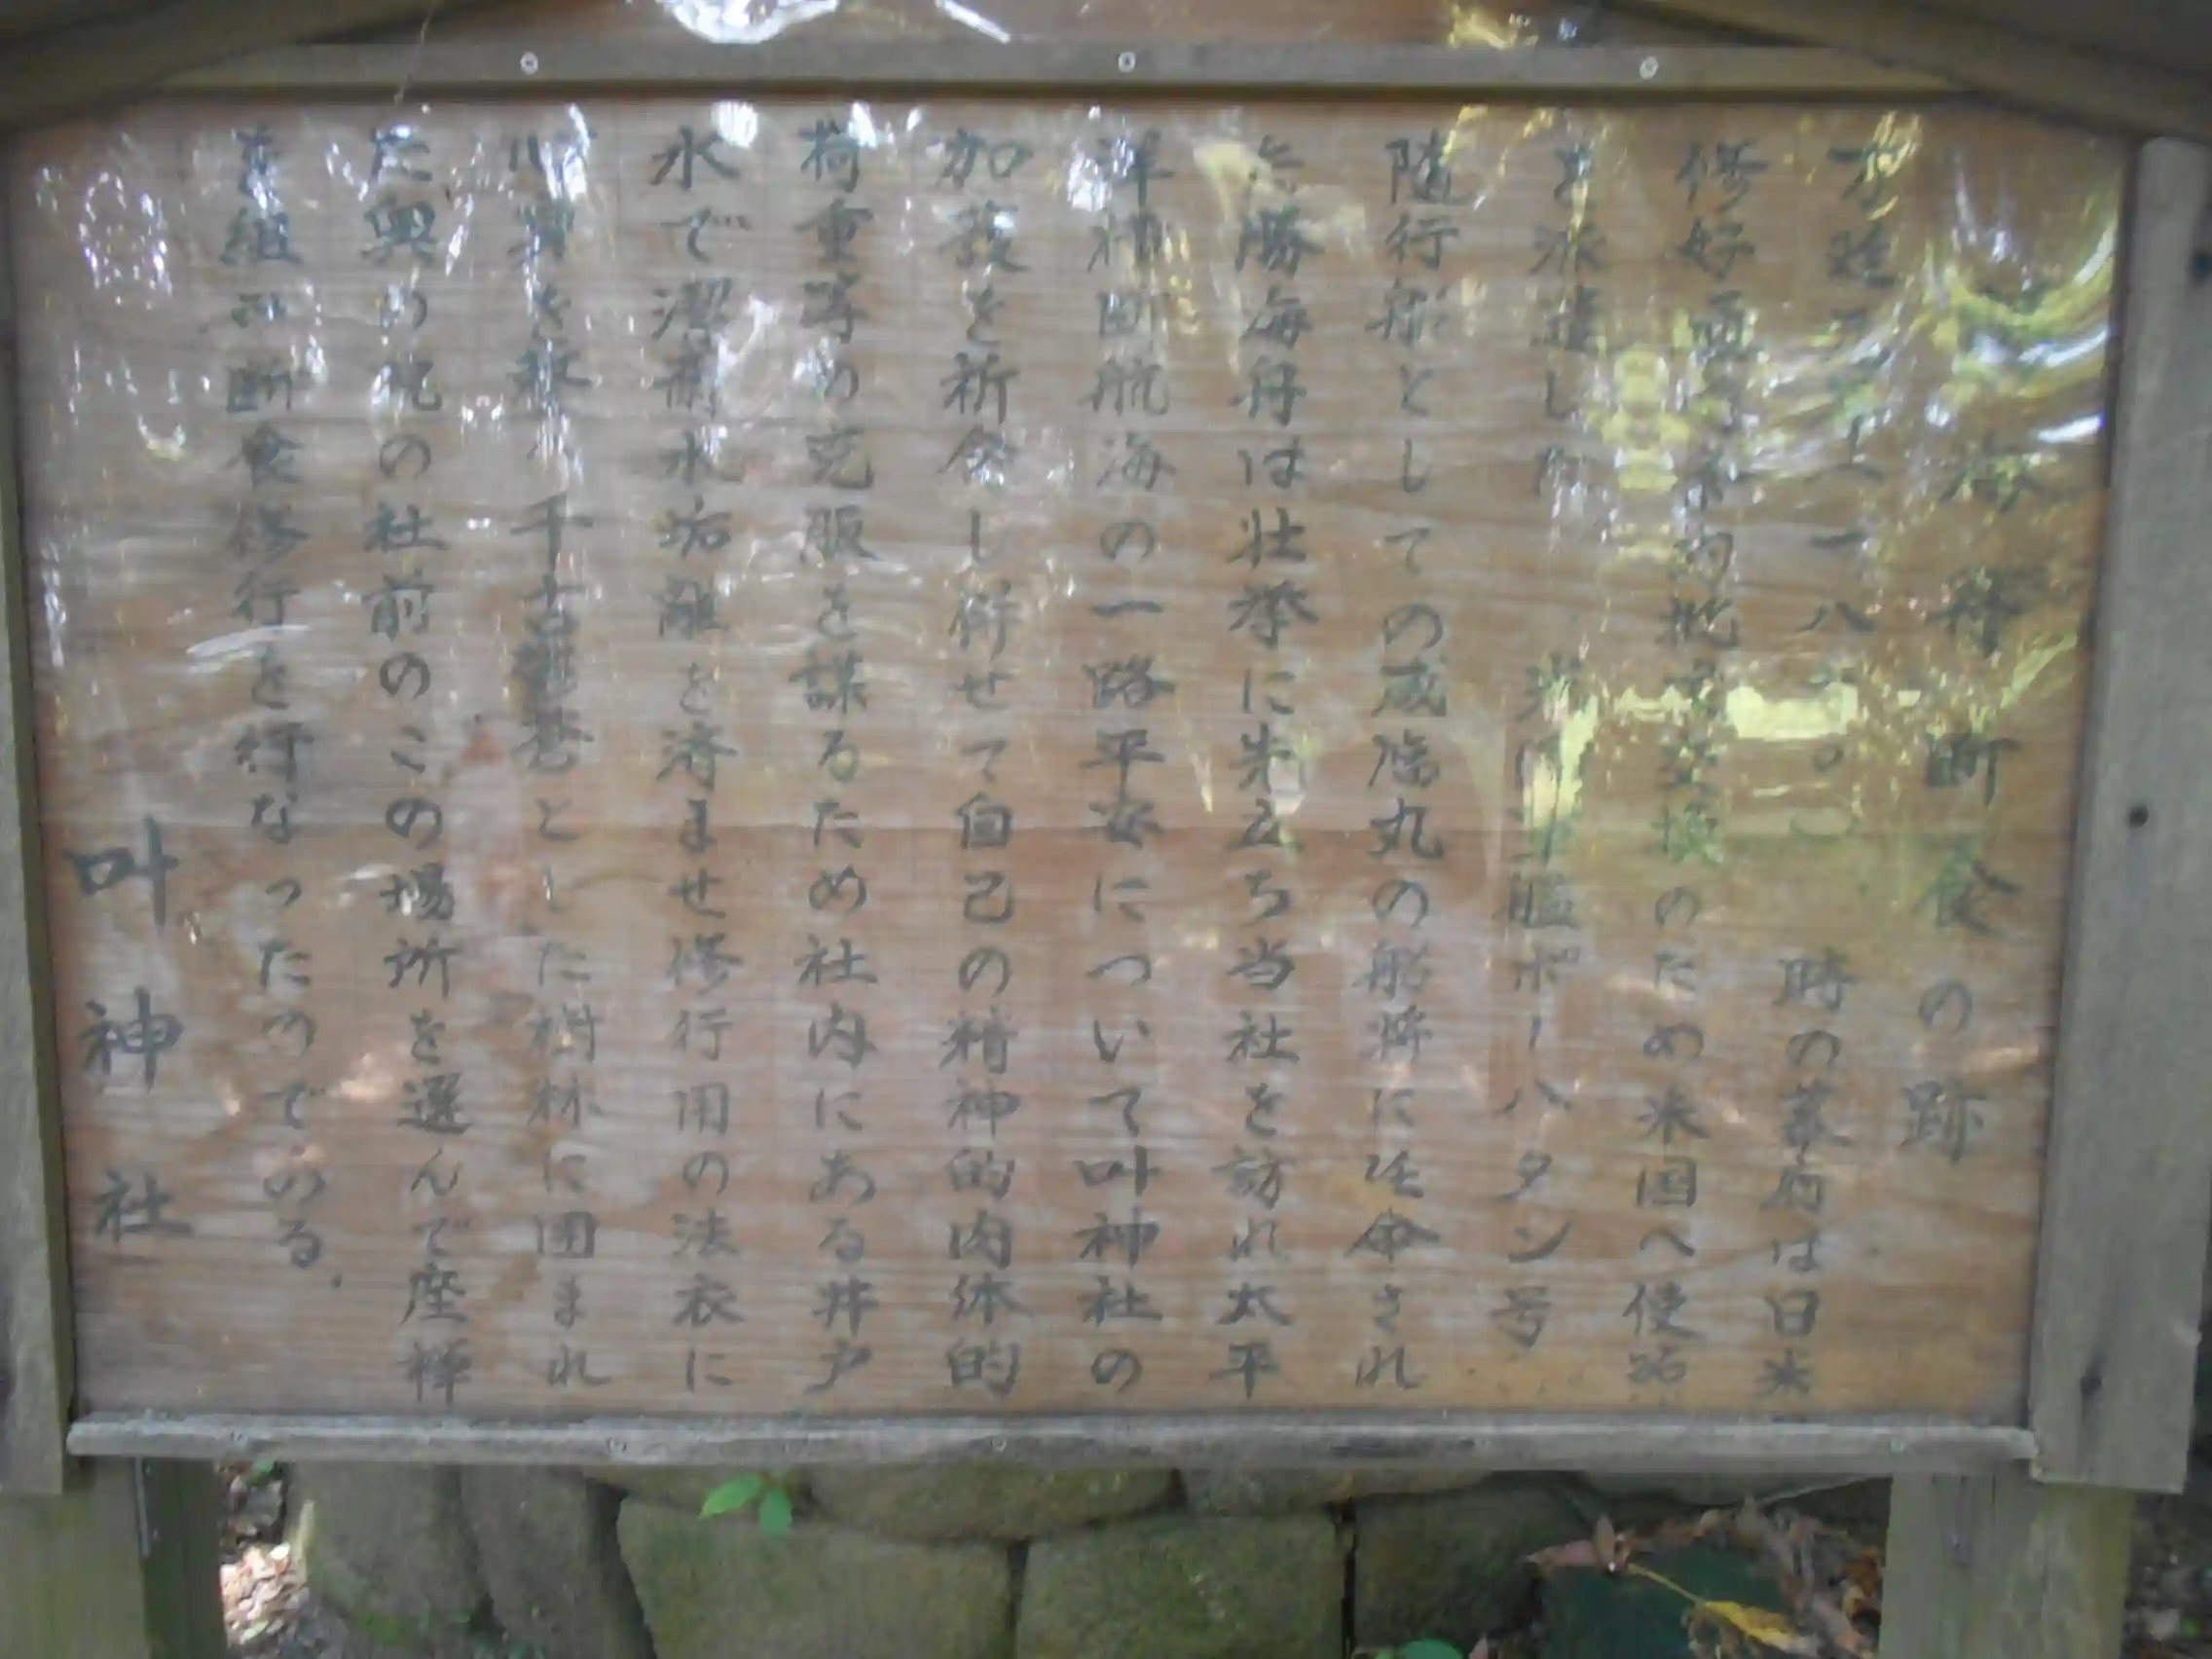 勝海舟断食の跡
万延元年(一八六〇) 時の幕府は日米
修好通商条約批准交換のため米国へ使節
を派遣した 米国軍艦ポーハタン号
随行船としての咸臨丸の船将に任命され
た勝海舟は壮挙に先立ち当社を訪れ太平
洋横断航海の一路平安について叶神社の
加護を祈念し併せて自己の精神的肉体的
荷重等の克服を謀るため社内にある井戸
水で潔斎水垢離を済ませ修行用の法衣に
を整え 千古鬱蒼とした樹林に囲まれ
た奥の院の社前のこの場所を選んで座禅
を組み断食修行を行なったのである.
叶神社